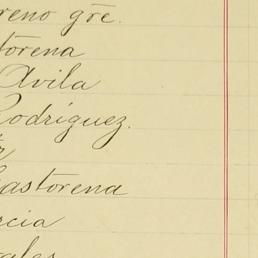 reno gre.
torena
Avila
Rodriguez.
Castorena
rcia
rales